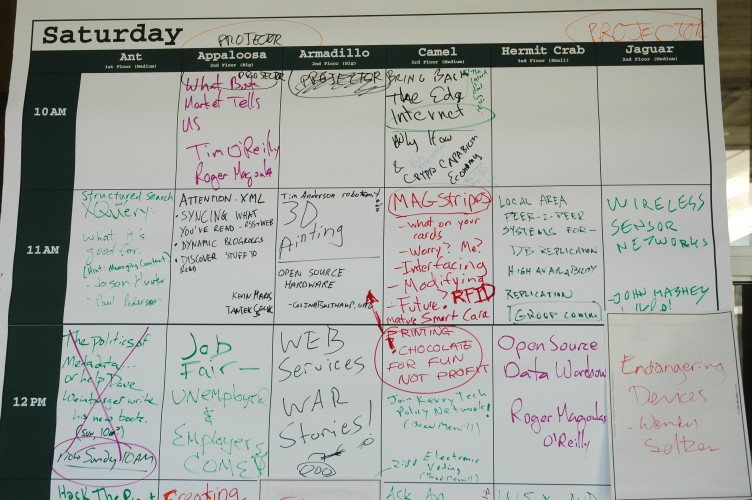 Saturday
PROJECTOR
PROJECTOR
Ant
1st Floor (Medium)
Appaloosa
2nd Floor (Big)
Armadillo
2nd Floor (Big)
Camel
3rd Floor (Medium)
Hermit Crab
3rd Floor (Small)
Jaguar
2nd Floor (Medium)
10AM
PROJECTOR
What Book
Market Tells
US
Tim O'Reilly
Roger Magoulas
PROJECTOR
BRING BACK
The Edge
Internet
Why How
&
Economy
11AM
Structured Search
XQuery
what it's
good for.
- Jason Hunter
ATTENTION.XML
• SYNCING WHAT
YOU'VE READ - RSS+WEB
• DYNAMIC BLOGROLLS
• DISCOVER STUFF TO
READ
KEVIN MARKS
TANTEK ÇELIK
Tim Anderson
3D
Printing
OPEN SOURCE
HARDWARE
MAG-Stripes
- what on your
cards
- Worry? Me?
- Interfacing
- Modifying
- Future > RFID
mature Smart Card
LOCAL AREA
PEER-2-PEER
SYSTEMS FOR -
DB REPLICATION
HIGH AVAILABILITY
REPLICATION
GROUP COMM.
WIRELESS
SENSOR
NETWORKS
JOHN MASHEY
12PM
The politics of
Metadata...
or help Dave
Weinberger write
his new book.
(Sun, 10am?)
now Sunday 10AM
Job
Fair -
UNemployed
&
Employers
COME!
WEB
Services
WAR
Stories!
PRINTING
CHOCOLATE
FOR FUN
NOT PROFIT
Join Kerry Tech
Policy Network!
Electronic
Voting
Open Source
Data Warehouse
Roger Magoulas
O'Reilly
Endangering
Devices
- Wendy
Seltzer
Hack The
Creating
Ask An